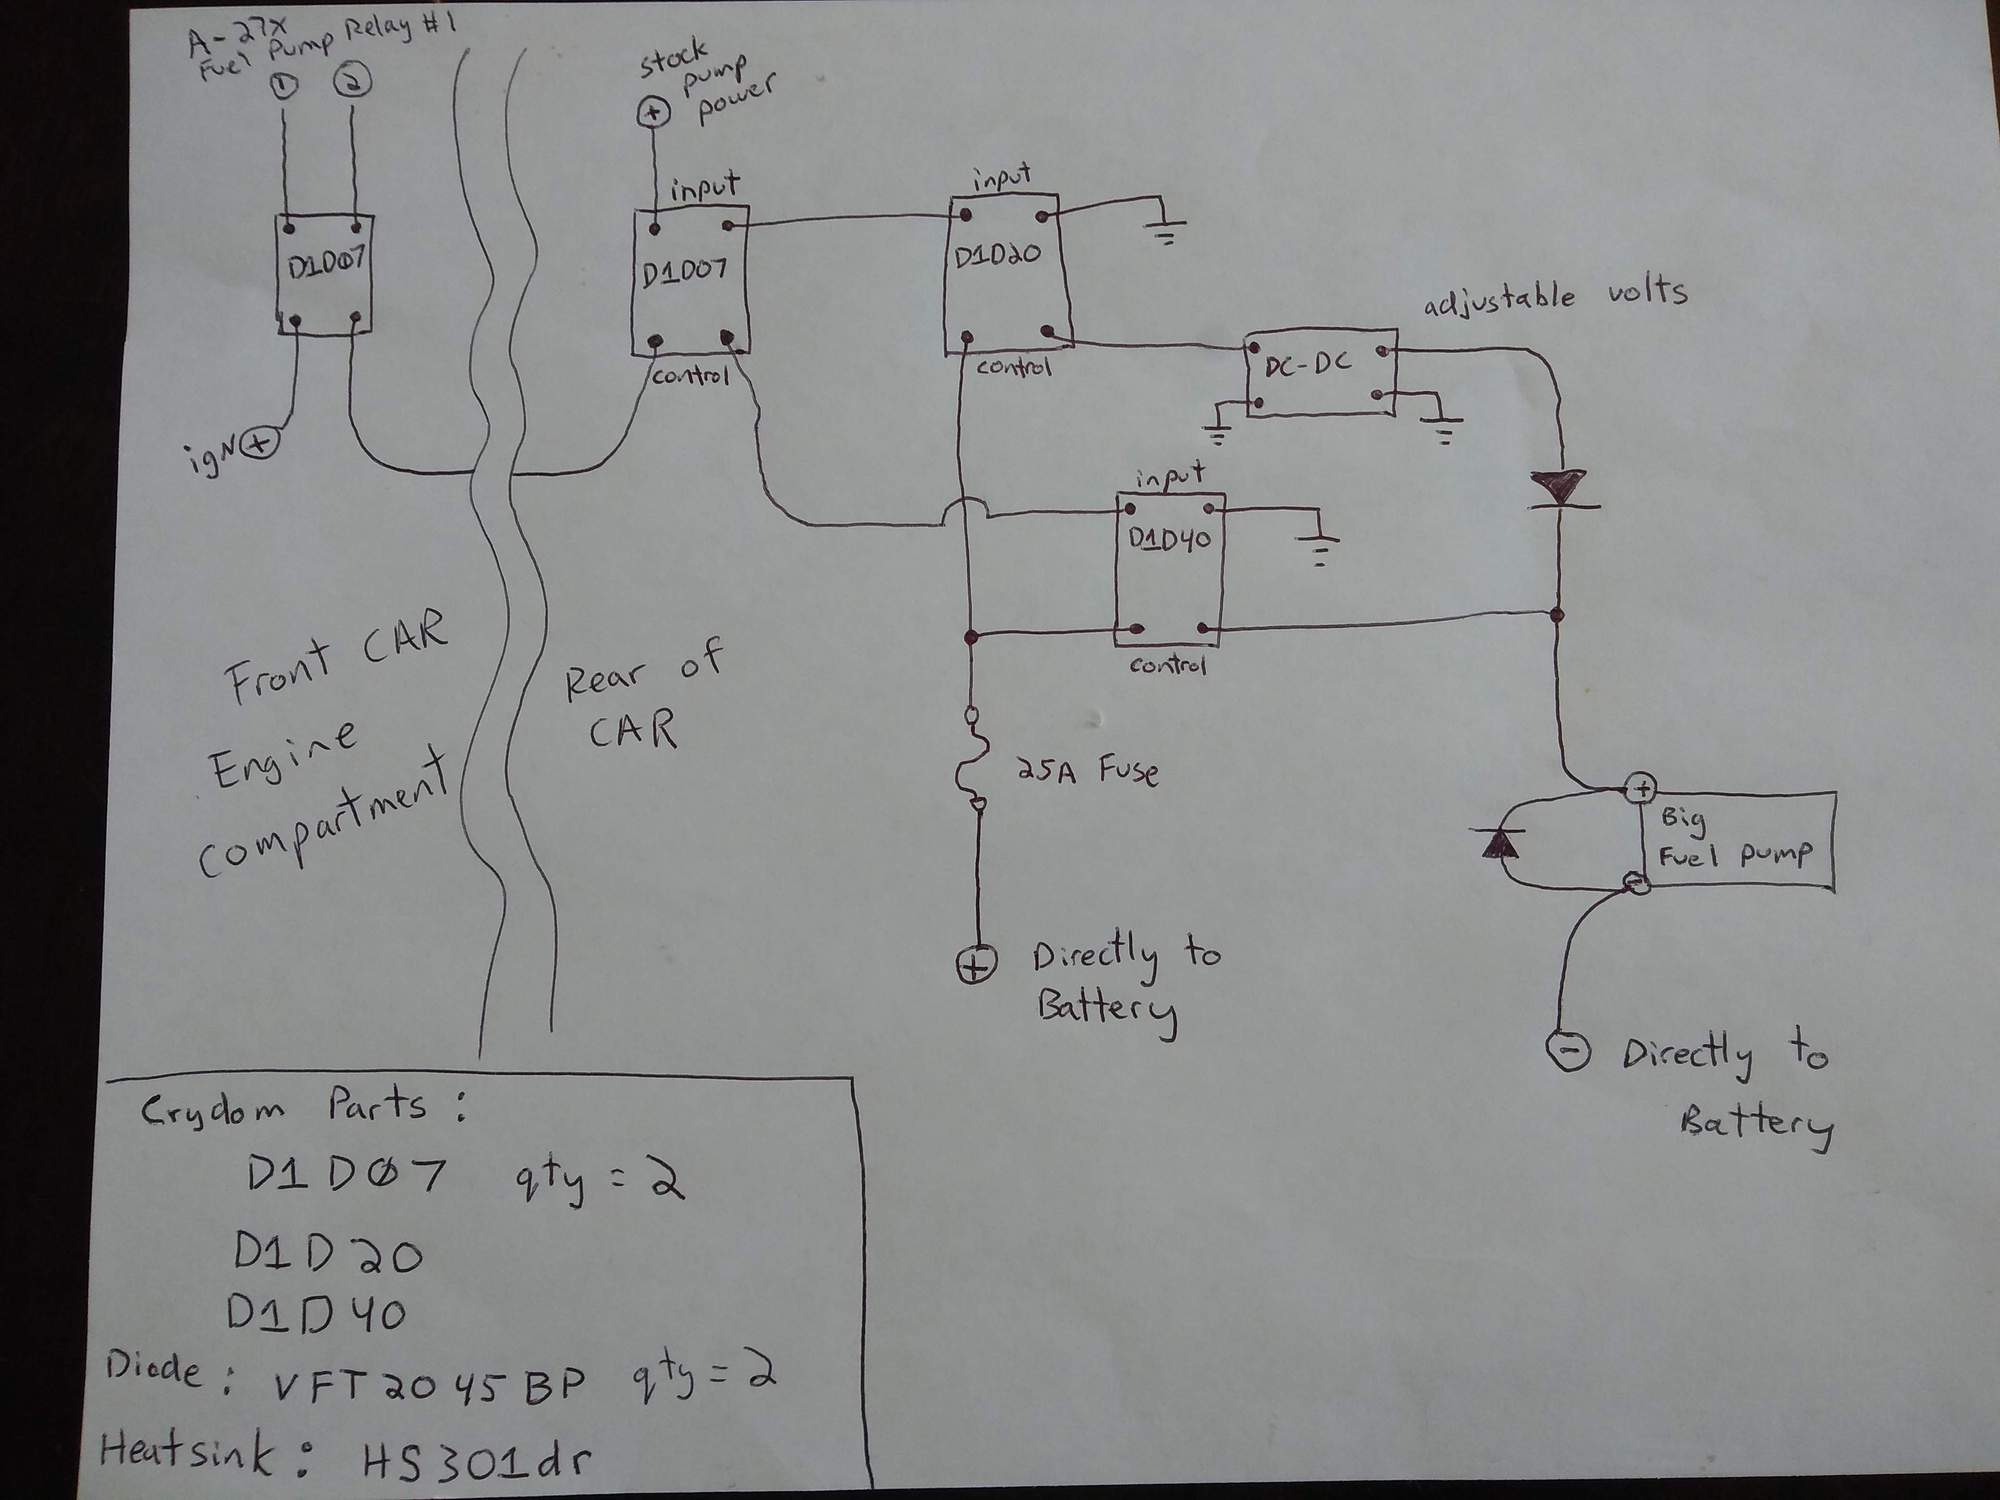 A-27X
Fuel Pump Relay #1
1 2
D1D07
ign +
stock
pump
power
+
input
D1D07
control
input
D1D20
control
adjustable volts
DC-DC
input
D1D40
control
25A Fuse
+ Directly to
Battery
+
Big
Fuel pump
-
- Directly to
Battery
Front CAR
Engine
compartment
Rear of
CAR
Crydom Parts:
D1D07 qty = 2
D1D20
D1D40
Diode: VFT2045BP qty = 2
Heatsink: HS301dr